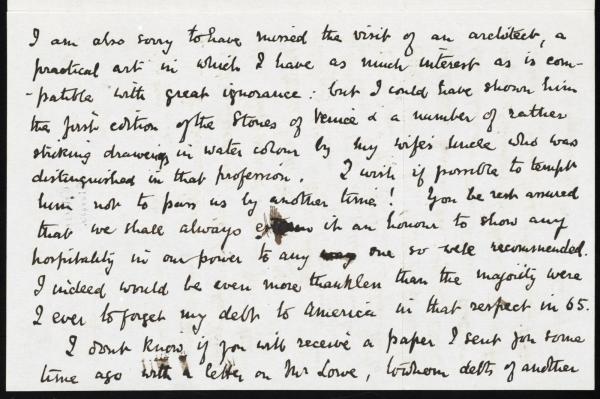 I am also sorry to have missed the visit of an architect, a
practical art in which I have as much interest as is com-
-patible with great ignorance: but I could have shown him
the first edition of the Stones of Venice & a number of rather
striking drawings in water colour by my wife's uncle who was
distinguished in that profession. I wish if possible to tempt
him not to pass us by another time! You be rest assured
that we shall always it an honour to show any
hospitality in our power to any way one so well recommended.
I indeed would be even more thankless than the majority were
I ever to forget my debt to America in that respect in 65.
I dont know if you will receive a paper I sent you some
time ago with a letter on Mr Lowe, to whom debts of another